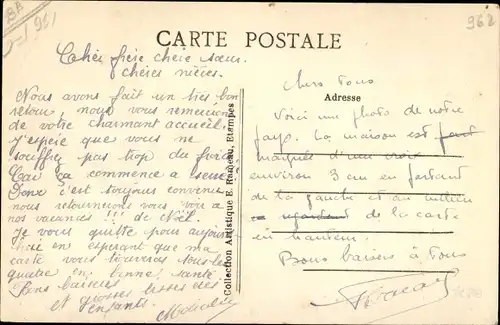 BA
961
962
CARTE POSTALE
Chère frère chère sœur.
chères nièces.
Nous avons fait un très bon
retour, nous vous remercions
de votre charmant accueil.
J'espère que vous ne
souffrez pas trop du froid
Car ça commence a
c'est toujours convenu
nous retournerons vous voir a
nos vacances !!! de Noël.
Je vous quitte pour aujour
en espérant que ma
carte vous trouvera tous les
quatre en bonne santé.
Bons baisers
et grosses bises des
enfants.
Collection Artistique E. Rameau, Etampes
Chers Tous
Adresse
Voici une photo de notre
pays. La maison est
marquée d'une croix
environ 3 cm en partant
de la gauche et au milieu
en regardant de la carte
en hauteur.
Bons baisers à Tous